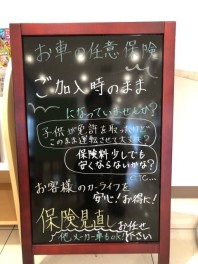 お車の任意保険
ご加入時のまま
になっていませんか?
子供が免許を取ったけど…
このまま運転させて大丈夫?
保険料少しでも
安くならないかな?
ETC…
お客様のカーライフを
安心!お得に!
保険見直しお任せ
下さい
他メーカー車もOK!